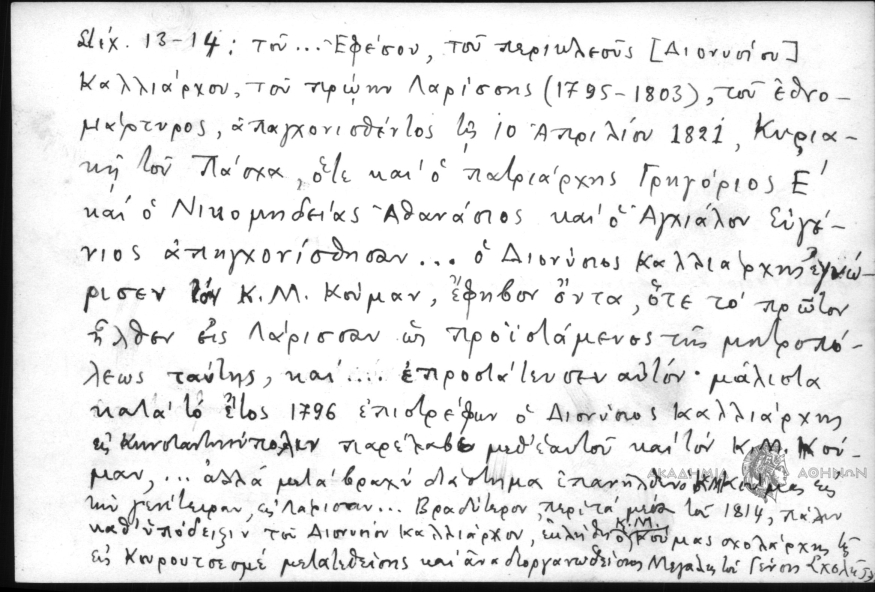 Στίχ. 13-14: τοῦ... Ἐφέσου, τοῦ περικλεοῦς [Διονυσίου]
Καλλιάρχου, τοῦ πρώην Λαρίσσης (1795-1803), τοῦ ἐθνο-
μάρτυρος, ἀπαγχονισθέντος τῇ 10 Ἀπριλίου 1821, Κυρια-
κῇ τοῦ Πάσχα, ὅτε καὶ ὁ πατριάρχης Γρηγόριος Ε΄
καὶ ὁ Νικομηδείας Ἀθανάσιος καὶ ὁ Ἀγχιάλου Εὐγέ-
νιος ἀπηγχονίσθησαν... ὁ Διονύσιος Καλλιάρχης ἐγνώ-
ρισεν τὸν Κ.Μ. Κούμαν, ἔφηβον ὄντα, ὅτε τὸ πρῶτον
ἦλθεν εἰς Λάρισσαν ὡς προϊστάμενος τῆς μητροπό-
λεως ταύτης, καὶ.... ἐπροστάτευσεν αὐτόν· μάλιστα
κατὰ τὸ ἔτος 1796 ἐπιστρέφων ὁ Διονύσιος Καλλιάρχης
εἰς Κωνσταντινούπολιν παρέλαβε μεθ' ἑαυτοῦ καὶ τὸν Κ.Μ. Κού-
μαν,... ἀλλὰ μετὰ βραχὺ διάστημα ἐπανῆλθεν ὁ Κ.Μ. Κούμας εἰς
τὴν γενέτειραν, εἰς Λάρισαν... Βραδύτερον, περὶ τὰ μέσα τοῦ 1814, πάλιν
καθ' ὑπόδειξιν τοῦ Διονυσίου Καλλιάρχου, ἐκλήθη ὁ Κ.Μ. Κούμας σχολάρχης τῆς
εἰς Κουρουτσεσμὲ μετατεθείσης καὶ ἀναδιοργανωθείσης Μεγάλης τοῦ Γένους Σχολῆς
ΑΚΑΔΗΜΙΑ ΑΘΗΝΩΝ